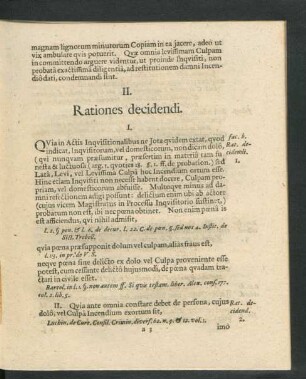 magnam lignorum minutorum Copiam in ea jacere, adeo ut
vix ambulare quis potuerit. Quæ omnia levissimam Culpam
in committendo arguere videntur, ut proinde Inquisiti, non
probatâ exactissimâ diligentiâ, ad restitutionem damni Incen-
dio dati, condemnandi sint.
II.
Rationes decidendi.
I.
Quia in Actis Inquisitionalibus ne Jota quidem extat, quod
indicat, Inquisitorum, vel domesticorum, non dicam dolô,
(qui nunquam præsumitur, præsertim in materiâ tam fu-
nesta & luctuosâ
Latâ, Levi, vel Levissimâ Culpâ hoc Incendium ortum esse.
Hinc etiam Inquisiti non necesse habent docere, Culpam pro-
priam, vel domesticorum abfuisse. Multoque minus ad da-
mni refectionem adigi possunt: delictum enim ubi ab actore
(cujus vicem Magistratus in Processu Inquisitorio sustinet)
probatum non est, ibi nec pœna obtinet. Non enim pœna is
est afficiendus, qui nihil admisit,
quia pœna præsupponit dolum vel culpam, aliàs fraus est.
neque pœna sine delicto ex dolo vel Culpa proveniente esse
potest, cum cessante delictô hujusmodi, de pœna quidem tra-
ctari in civile esset.
II. Quia ante omnia constare debet de persona, cujus
dolô, vel Culpâ Incendium exortum sit,
Rat. de-
cidend.
2.
a 3
imò